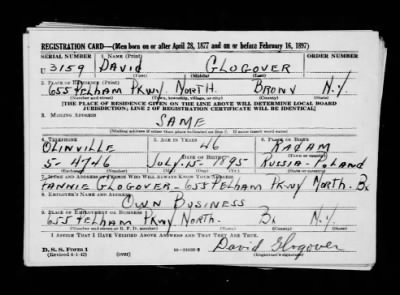 REGISTRATION CARD—(Men born on or after April 28, 1877 and on or before February 16, 1897)
SERIAL NUMBER 1. NAME (Print) ORDER NUMBER
U 3159 DAVID GLOGOVER
(First) (Middle) (Last)
2. PLACE OF RESIDENCE (Print)
655 PELHAM PKWY. NORTH. BRONX N.Y.
(Number and street) (Town, township, village, or city) (County) (State)
[THE PLACE OF RESIDENCE GIVEN ON THE LINE ABOVE WILL DETERMINE LOCAL BOARD
JURISDICTION; LINE 2 OF REGISTRATION CERTIFICATE WILL BE IDENTICAL]
3. MAILING ADDRESS
SAME
(Mailing address if other than place indicated on line 2. If same insert word same)
4. TELEPHONE 5. AGE IN YEARS 6. PLACE OF BIRTH
OLINVILLE 46 RADAM
DATE OF BIRTH
5-4746 JULY-15-1895 RUSSIA-POLAND
7. NAME AND ADDRESS OF PERSON WHO WILL ALWAYS KNOW YOUR ADDRESS
FANNIE GLOGOVER-655 PELHAM PKWY NORTH. BX
8. EMPLOYER'S NAME AND ADDRESS
OWN BUSINESS
9. PLACE OF EMPLOYMENT OR BUSINESS
655 PELHAM PKWY NORTH. BX N.Y.
(Number and street or R. F. D. number) (Town) (County) (State)
I AFFIRM THAT I HAVE VERIFIED ABOVE ANSWERS AND THAT THEY ARE TRUE.
D. S. S. Form 1
(Revised 4-1-42) (over) David Glogover
(Registrant's signature)